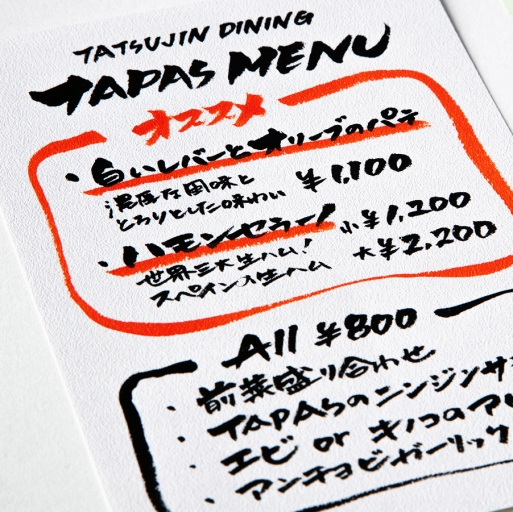 TATSUJIN DINING
TAPAS MENU
オススメ
・白いレバーとオリーブのパテ
濃厚な風味と
とろりとした味わい ¥1,100
・ハモンセラーノ 小¥1,200
世界三大生ハム! 大¥2,200
スペイン産生ハム
All ¥800
・前菜盛り合わせ
・TAPASのニンジンサ
・エビ or キノコのア
・アンチョビガーリック